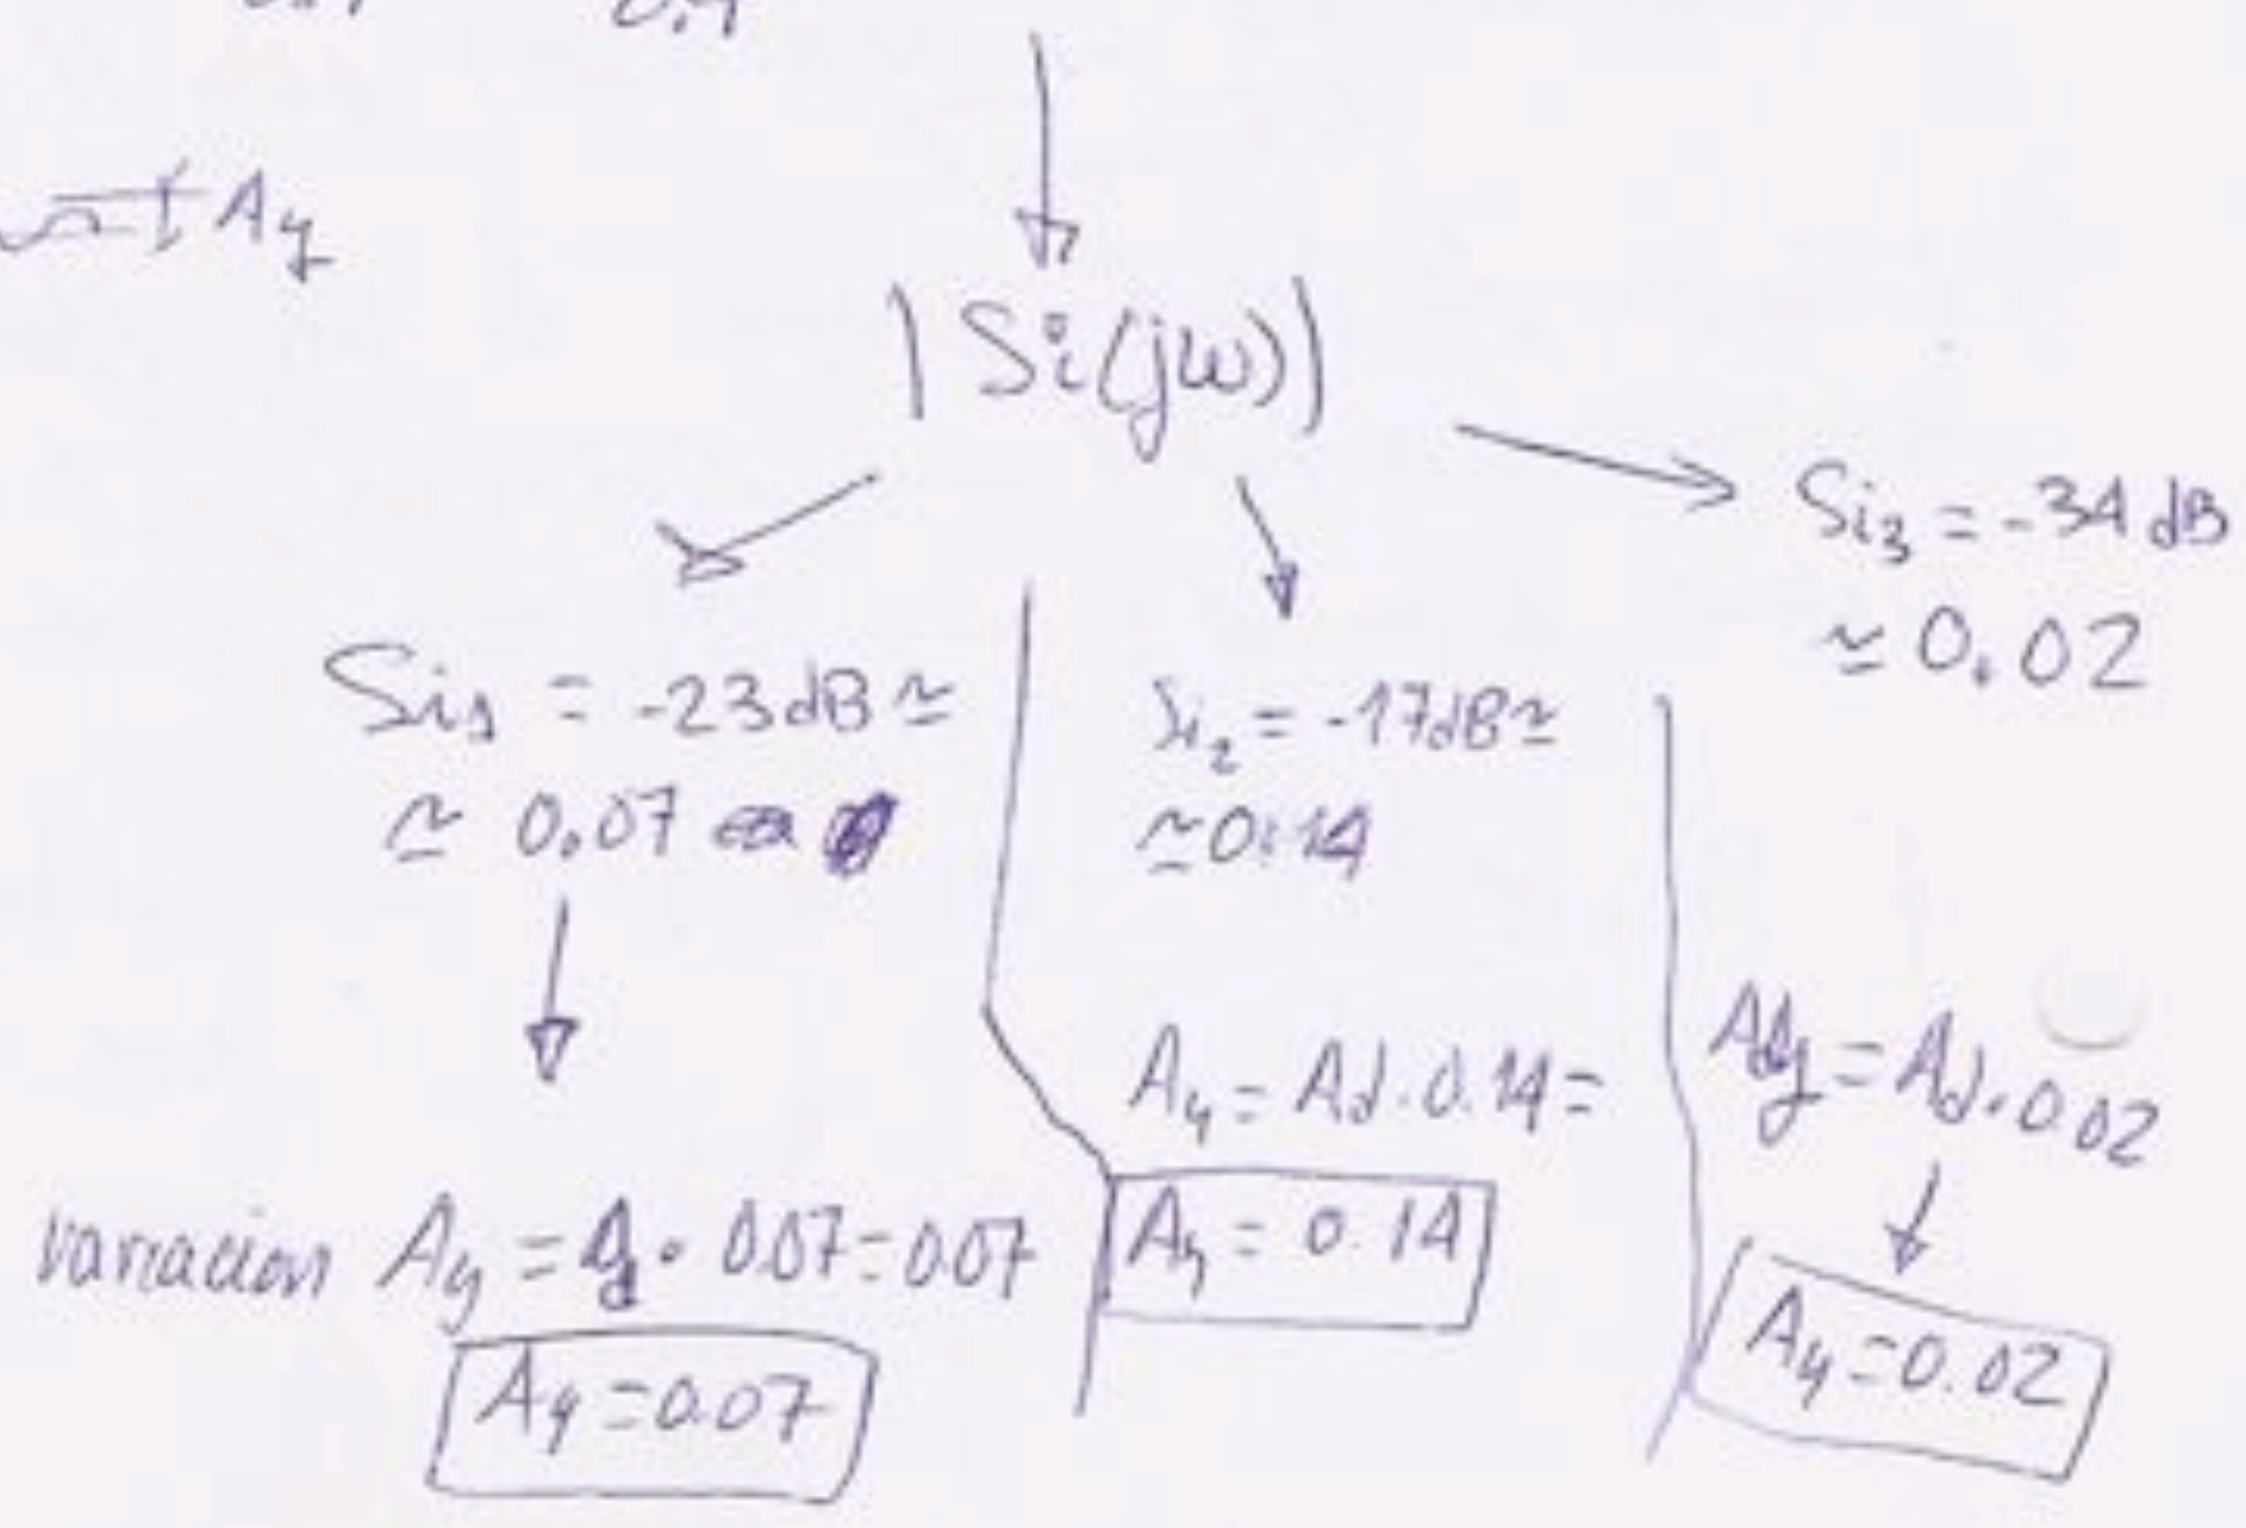 0.4
Ay
|Si(jω)|
Si1 = -23dB ≃
≃ 0.07
variacion Ay = 1 · 0.07 = 0.07
Ay = 0.07
Si2 = -17dB ≃
≃ 0.14
Ay = Ad · 0.14 =
Ay = 0.14
Si3 = -34 dB
≃ 0.02
Ay = Ad · 0.02
Ay = 0.02